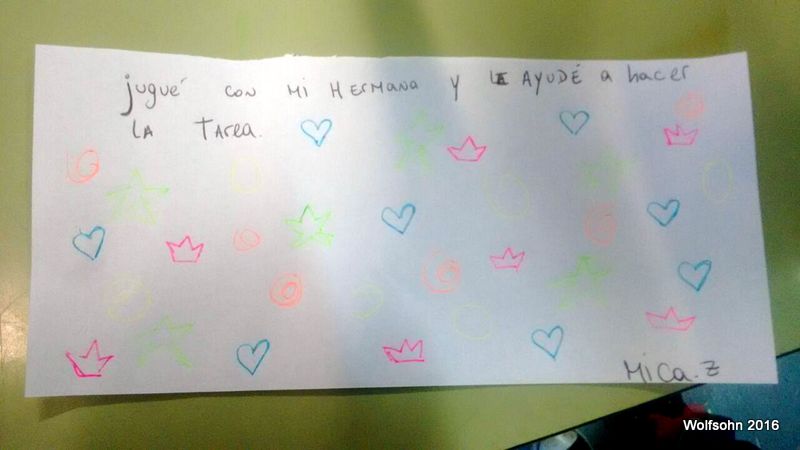 jugué con mi Hermana y LE AYUDÉ a hacer
LA Tarea.
Mica.Z
Wolfsohn 2016